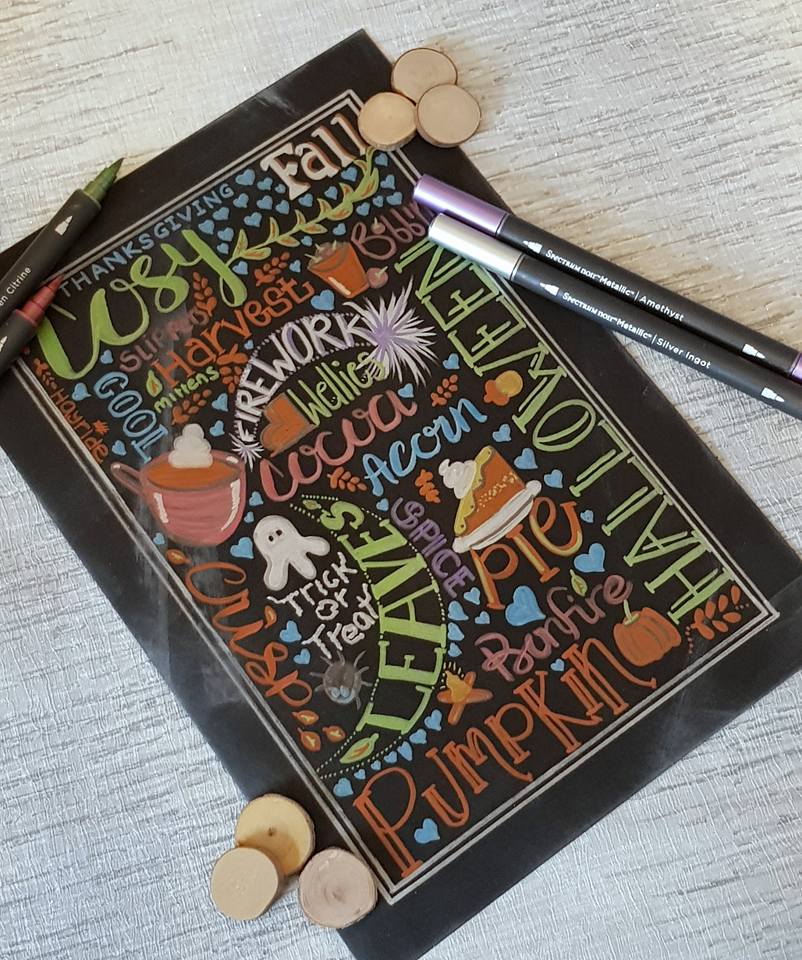 Fall
THANKSGIVING
Cosy
Harvest
COOL
mittens
Hayride
FIREWORK
Wellies
HALLOWEEN
cocoa
Acorn
SPICE
PIE
Trick
or
Treat
LEAVES
Crisp
Bonfire
PUMPKIN
Spectrum Noir™ Metallic | Amethyst
Spectrum Noir™ Metallic | Silver Ingot
Citrine